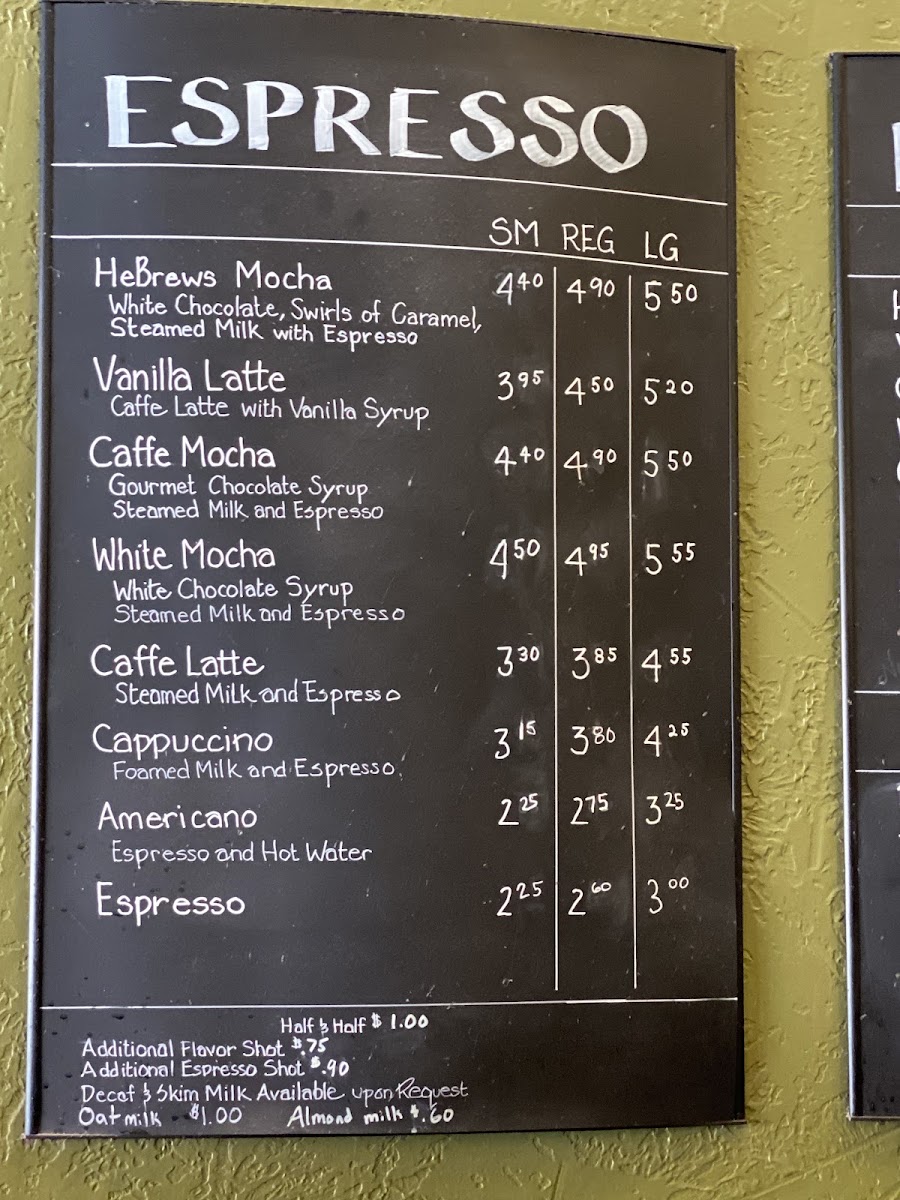 ESPRESSO
SM REG LG
HeBrews Mocha 4.40 4.90 5.50
White Chocolate, Swirls of Caramel,
Steamed Milk with Espresso
Vanilla Latte 3.95 4.50 5.20
Caffe Latte with Vanilla Syrup
Caffe Mocha 4.40 4.90 5.50
Gourmet Chocolate Syrup
Steamed Milk and Espresso
White Mocha 4.50 4.95 5.55
White Chocolate Syrup
Steamed Milk and Espresso
Caffe Latte 3.30 3.85 4.55
Steamed Milk and Espresso
Cappuccino 3.15 3.80 4.25
Foamed Milk and Espresso
Americano 2.25 2.75 3.25
Espresso and Hot Water
Espresso 2.25 2.60 3.00
Half & Half $1.00
Additional Flavor Shot $.75
Additional Espresso Shot $.90
Decaf & Skim Milk Available upon Request
Oatmilk $1.00 Almond milk $.60